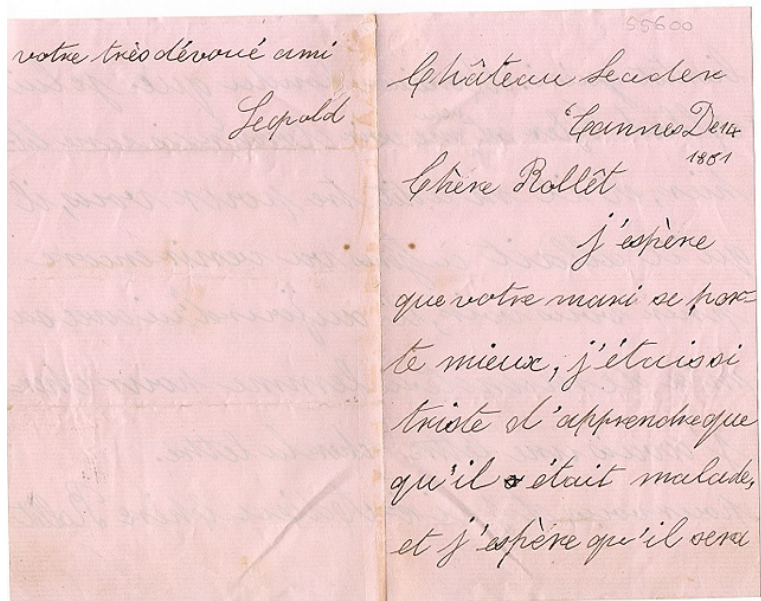 55600
votre très dévoué ami
Leopold
Château Leader
Cannes De 14
1881
Chère Rollêt
j'espère
que votre mari se por-
te mieux, j'étaissi
triste d'apprendre que
qu'il était malade,
et j'espère qu'il sera